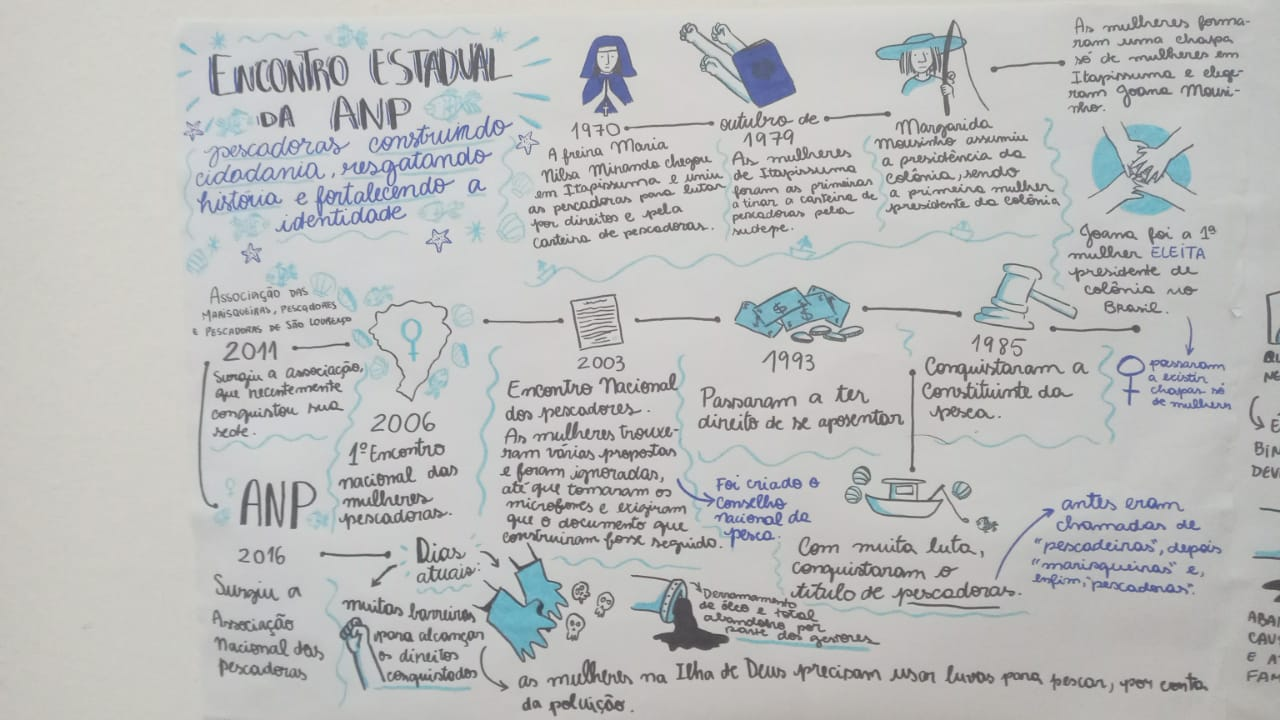 ENCONTRO ESTADUAL
DA ANP
pescadoras construindo
cidadania, resgatando
história e fortalecendo a
identidade
1970
A freira Maria
Nilsa Miranda chegou
em Itapissuma e uniu
as pescadoras para lutar
por direitos e pela
carteira de pescadoras.
outubro de
1979
As mulheres
de Itapissuma
foram as primeiras
a tirar a carteira de
pescadoras pela
sudepe.
Margarida
Mousinho assumiu
a presidência da
colônia, sendo
a primeira mulher
presidente da colônia
As mulheres forma-
ram uma chapa
só de mulheres em
Itapissuma e elege-
ram Joana Mousi-
nho.
Joana foi a 1ª
mulher ELEITA
presidente de
colônia no
Brasil.
passaram
a existir
chapas só
de mulheres
1985
Conquistaram a
Constituinte da
pesca.
Com muita luta,
conquistaram o
título de pescadoras.
antes eram
chamadas de
"pescadeiras", depois
"marisqueiras" e,
enfim, "pescadoras".
1993
Passaram a ter
direito de se aposentar
2003
Encontro Nacional
dos pescadores.
As mulheres trouxe-
ram várias propostas
e foram ignoradas,
até que tomaram os
microfones e exigiram
que o documento que
construíram fosse seguido.
Foi criado o
Conselho
Nacional da
pesca.
2006
1º Encontro
nacional das
mulheres
pescadoras.
ASSOCIAÇÃO DAS
MARISQUEIRAS, PESCADORES
E PESCADORAS DE SÃO LOURENÇO
2011
Surgiu a associação,
que recentemente
conquistou sua
sede.
ANP
2016
Surgiu a
Associação
Nacional das
Pescadoras
Dias
atuais:
muitas barreiras
para alcançar
os direitos
conquistados
Derramamento
de óleo e total
abandono por
parte dos gestores
as mulheres na Ilha de Deus precisam usar luvas para pescar, por conta
da poluição.